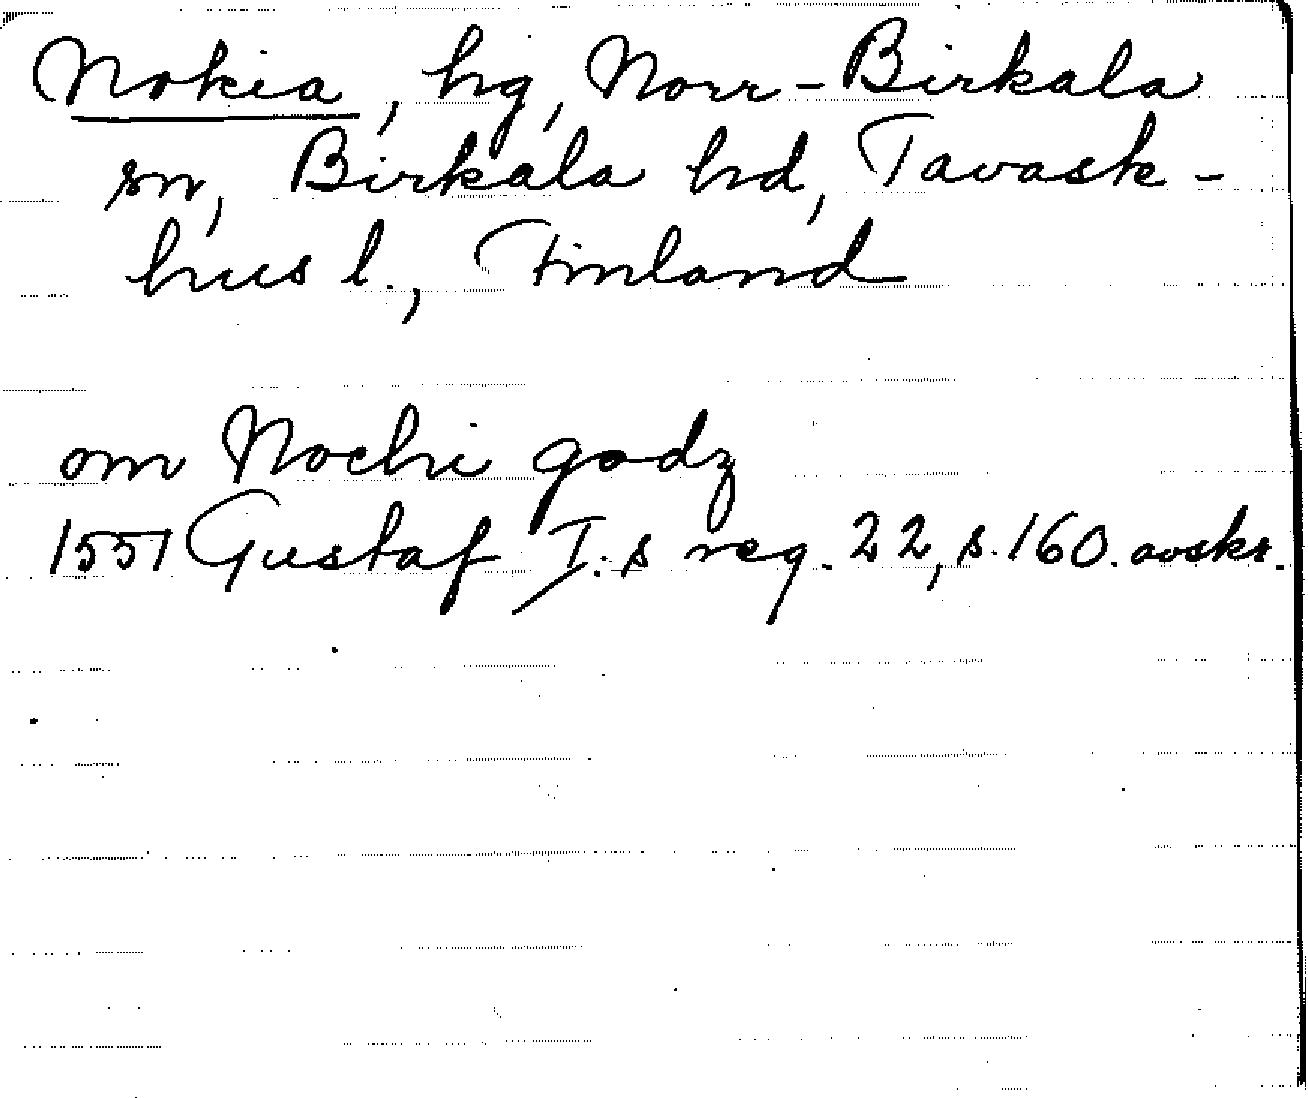 Nokia, hg, Norr-Birkala
sn, Birkala hd, Tavask-
hus l., Finland
om Nochi godz
1551 Gustaf I.s reg. 22, s. 160. avskr.